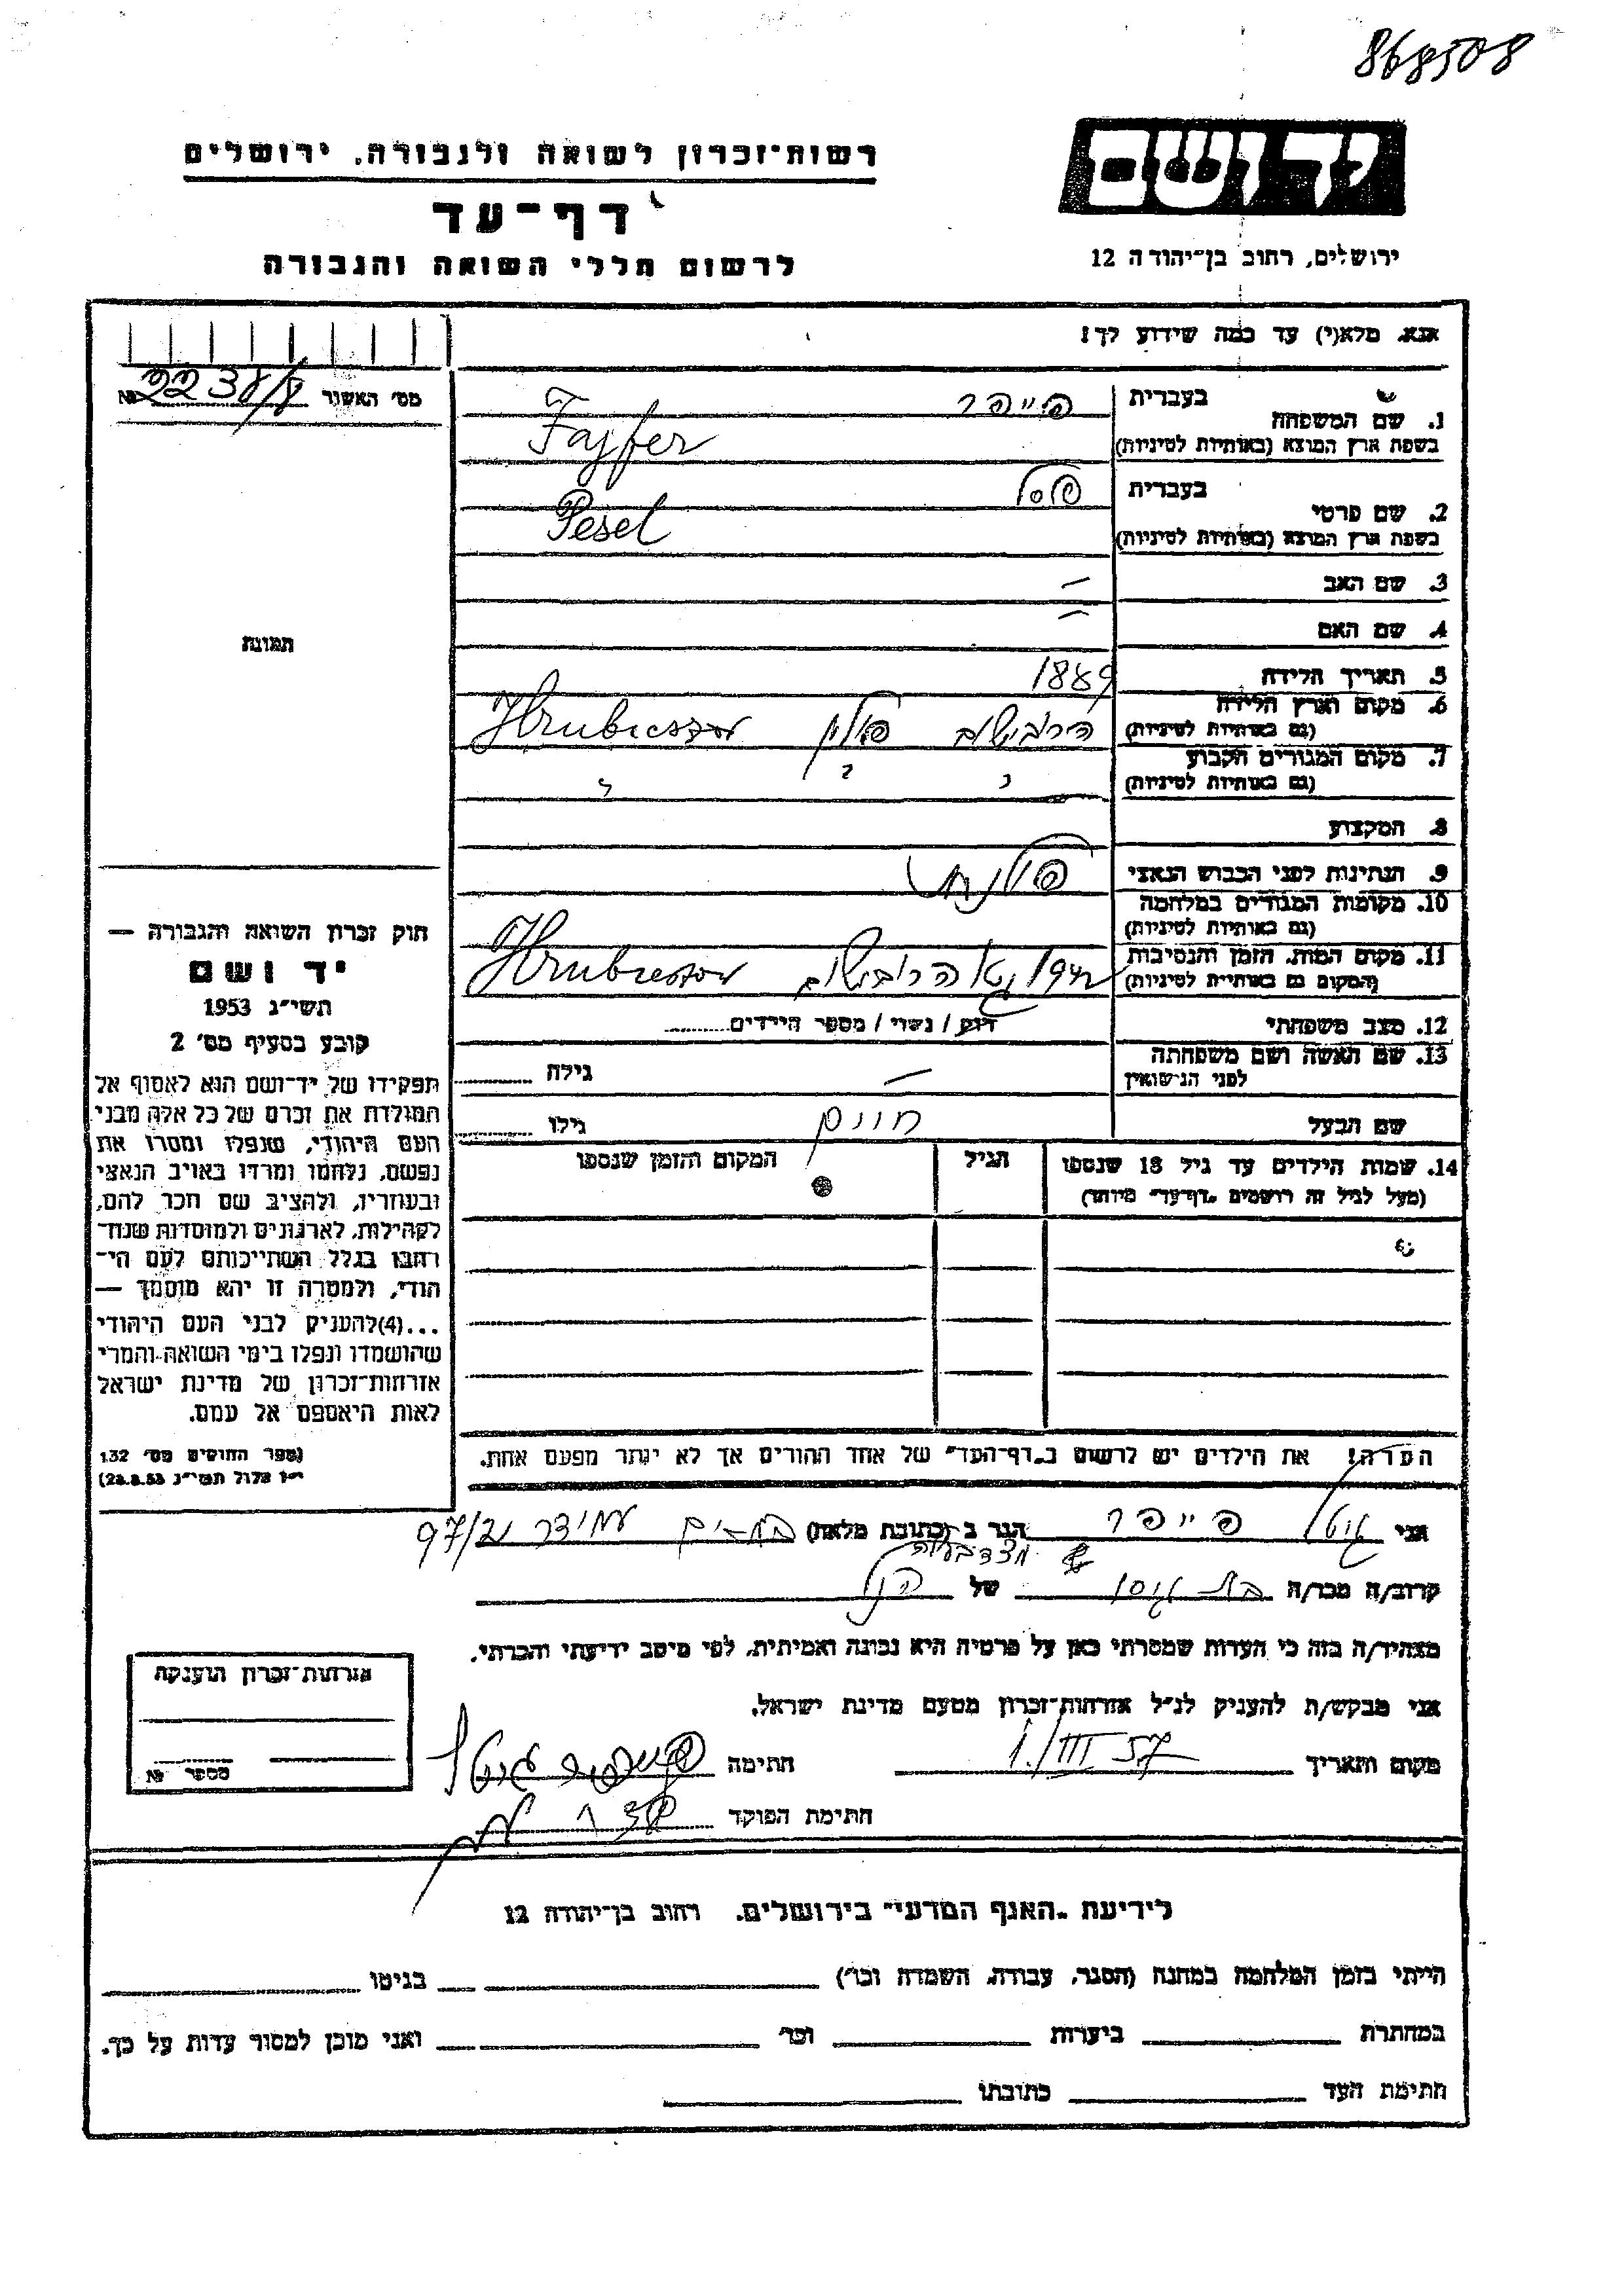 868508
רשות־זכרון לשואה ולגבורה, ירושלים
דף־עד
לרשום חללי השואה והגבורה
יד ושם
ירושלים, רחוב בן־יהודה 12
אנא, מלא(י) עד כמה שידוע לך!
מס׳ האשור № 2238/8
1. שם המשפחה
בעברית פייפר
בשפת ארץ המוצא (באותיות לטיניות) Fajfer
2. שם פרטי
בעברית פסל
בשפת ארץ המוצא (באותיות לטיניות) Pesel
3. שם האב —
4. שם האם —
תמונה
5. תאריך הלידה 1889
6. מקום וארץ הלידה
(גם באותיות לטיניות) הרובישוב פולין Hrubieszow
7. מקום המגורים הקבוע
(גם באותיות לטיניות) " " "
8. המקצוע
9. הנתינות לפני הכבוש הנאצי פולנית
10. מקומות המגורים במלחמה
(גם באותיות לטיניות)
11. מקום המות, הזמן והנסיבות
(המקום גם באותיות לטיניות) 1942 הרובישוב Hrubieszow
12. מצב משפחתי רווק / נשוי / מספר הילדים
13. שם האשה ושם משפחתה
לפני הנישואין — גילה
שם הבעל חיים גילו
14. שמות הילדים עד גיל 18 שנספו
(מעל לגיל זה רושמים „דף־עד" מיוחד)
הגיל
המקום והזמן שנספו
חוק זכרון השואה והגבורה —
יד ושם
תשי״ג 1953
קובע בסעיף מס׳ 2
תפקידו של יד־ושם הוא לאסוף אל
המולדת את זכרם של כל אלה מבני
העם היהודי, שנפלו ומסרו את
נפשם, נלחמו ומרדו באויב הנאצי
ובעוזריו, ולהציב שם וזכר להם,
לקהילות, לארגונים ולמוסדות שנח־
רבו בגלל השתייכותם לעם הי־
הודי, ולמטרה זו יהא מוסמך —
...(4)להעניק לבני העם היהודי
שהושמדו ונפלו בימי השואה והמרי
אזרחות־זכרון של מדינת ישראל
לאות היאספם אל עמם.
(ספר החוקים מס׳ 132
י״ז אלול תשי״ג 28.8.53)
הערה! את הילדים יש לרשום ב„דף־העד" של אחד ההורים אך לא יותר מפעם אחת.
אני גיטל פייפר הגר ב (כתובת מלאה) בת-ים עמידר 97/2
קרוב/ה מכר/ה בת גיסו של הנ"ל
מצד בעלה
מצהיר/ה בזה כי העדות שמסרתי כאן על פרטיה היא נכונה ואמיתית, לפי מיטב ידיעתי והכרתי.
אני מבקש/ת להעניק לנ״ל אזרחות־זכרון מטעם מדינת ישראל.
מקום ותאריך 1./III 57 חתימה פייפר גיטל
חתימת הפוקד
אזרחות־זכרון הוענקה
מספר №
לידיעת „האגף המדעי" בירושלים, רחוב בן־יהודה 12
הייתי בזמן המלחמה במחנה (הסגר, עבודה, השמדה וכו׳) בגיטו
במחתרת ביערות וכו׳ ואני מוכן למסור עדות על כך.
חתימת העד כתובתו